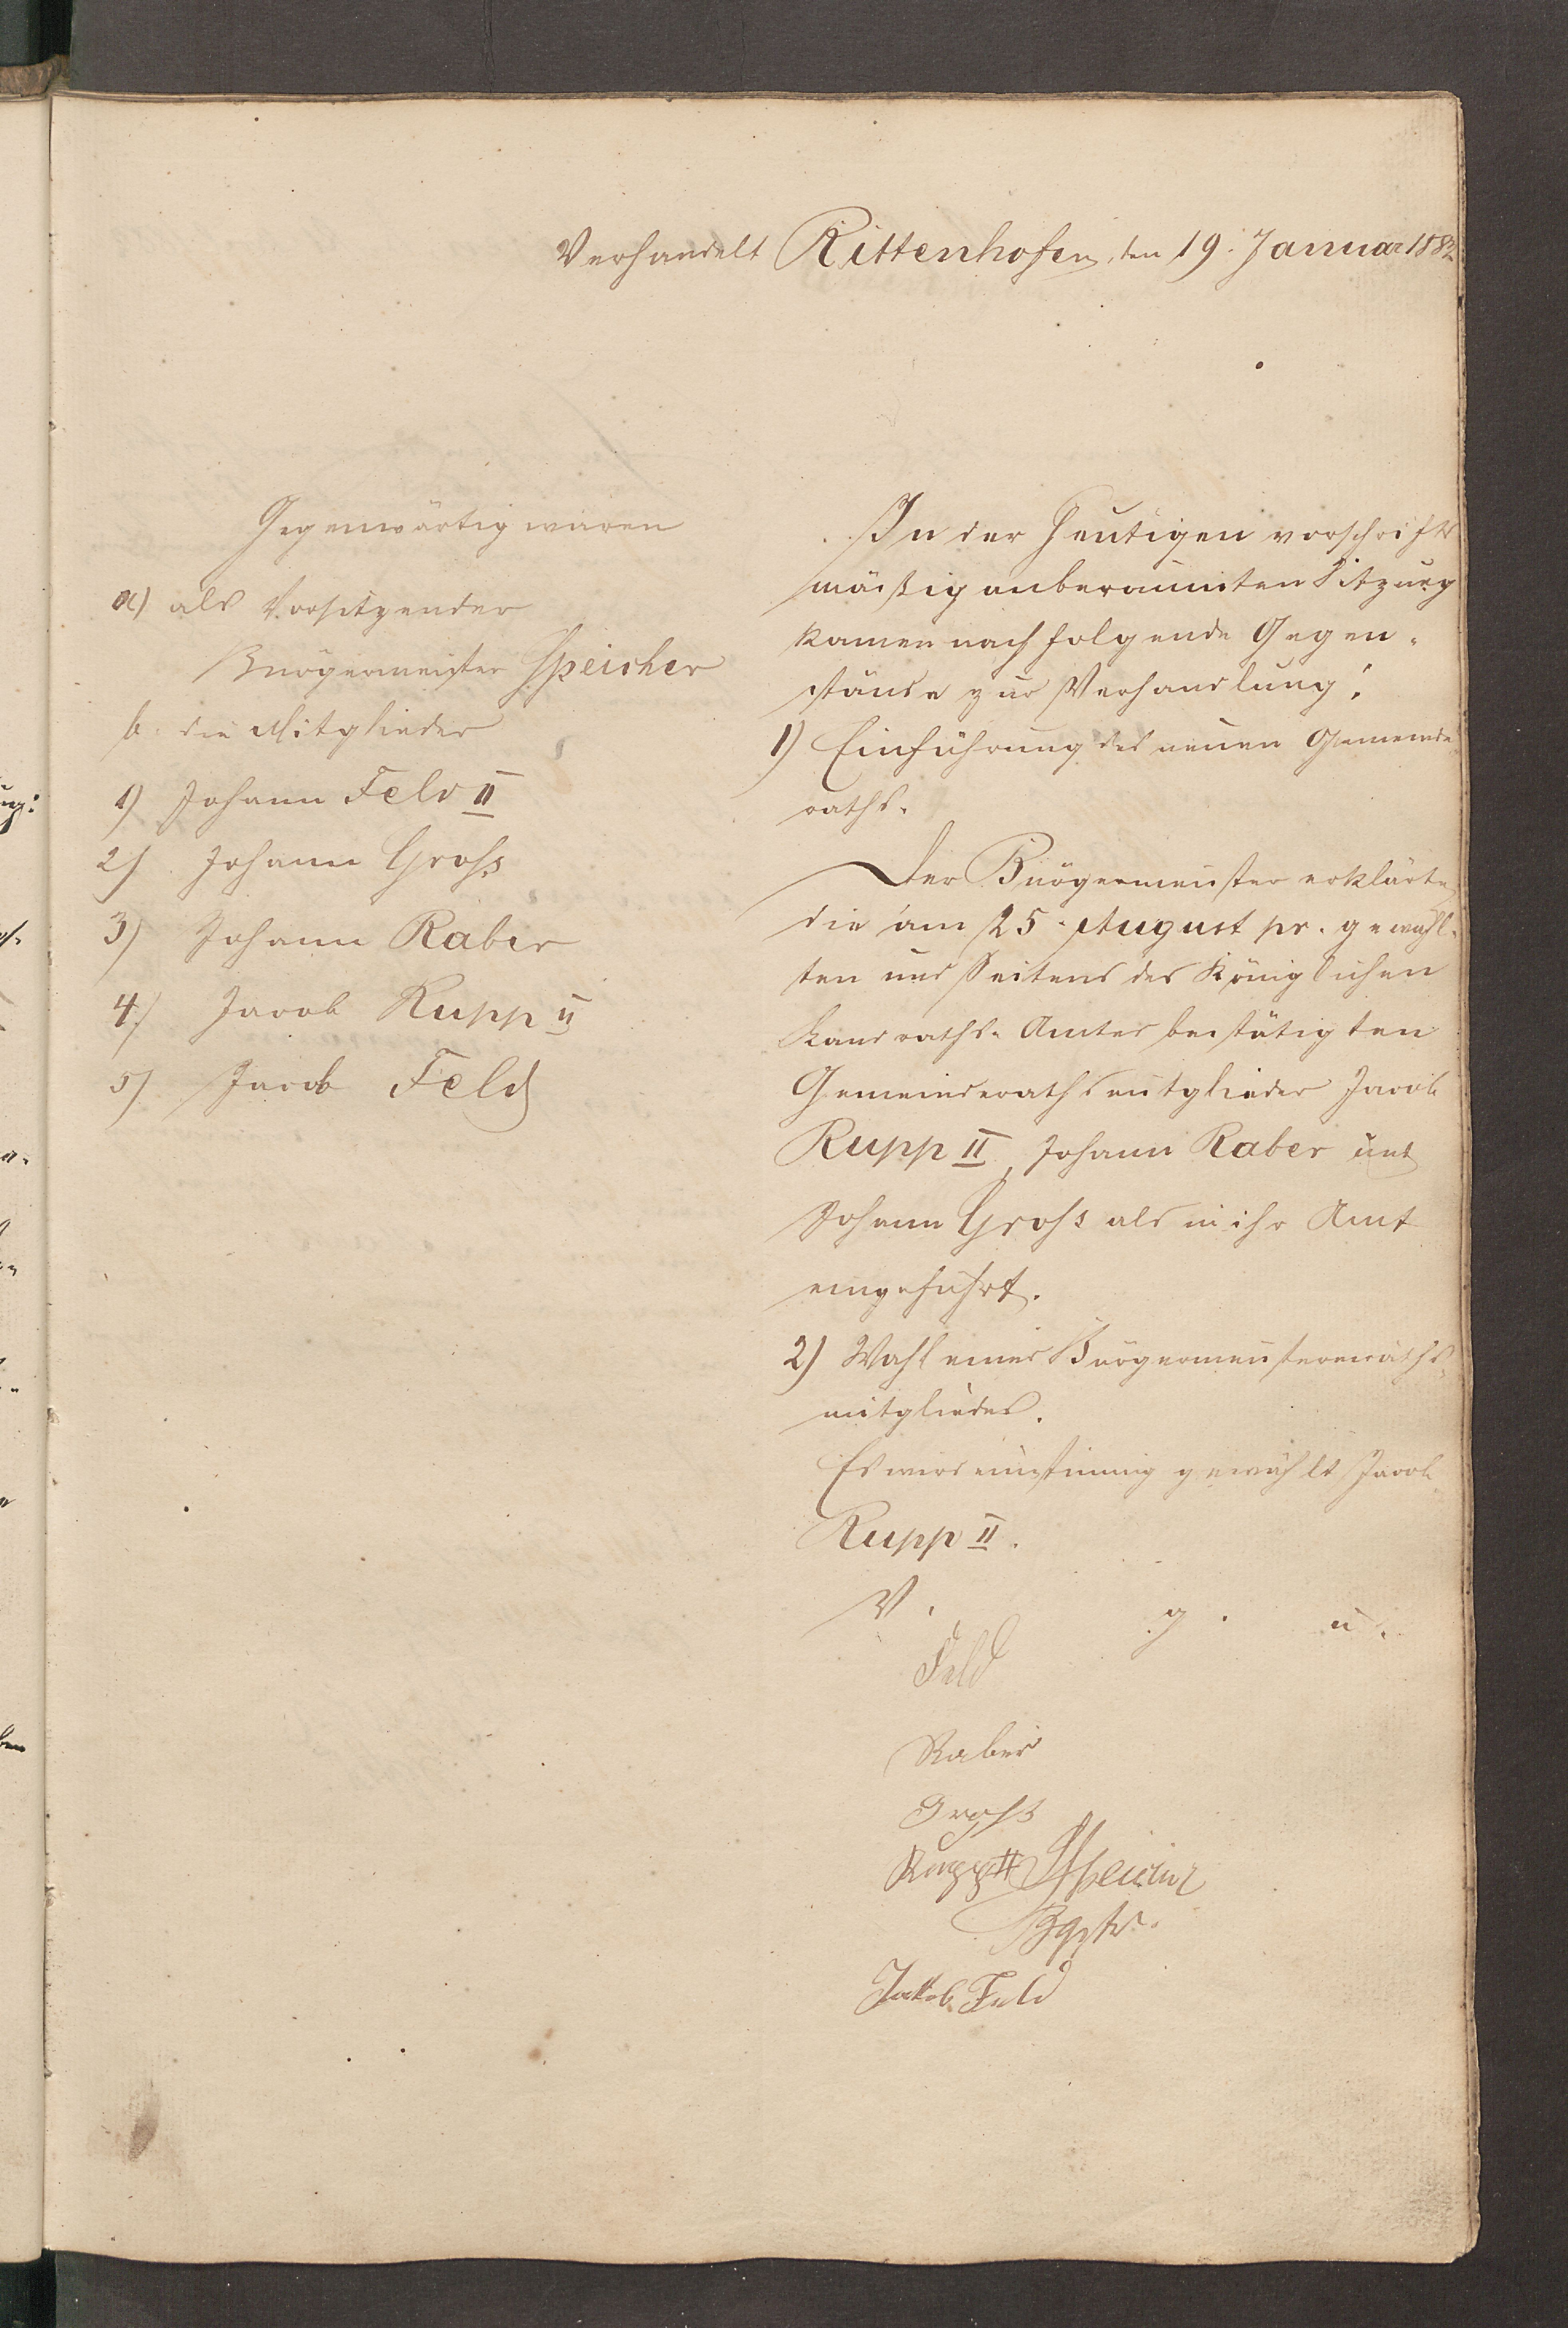 Verhandelt Rittenhofen, den 19. Januar 1882
Gegenwärtig waren
a) als Vorsitzender
Bürgermeister Speicher
b. die Mitglieder
1) Johann Feld II
2) Johann Groß
3) Johann Raber
4) Jacob Rupp II
5) Jacob Feld
In der heutigen vorschrifts
mäßig anberaumten Sitzung
kamen nachfolgende Gegen-
stände zur Verhandlung:
1) Einführung des neuen Gemeinde
raths.
Der Bürgermeister erklärte
die am 25. August pr. gewähl-
ten und Seitens des Königlichen
Landraths-Amtes bestätigten
Gemeinderathsmitglieder Jacob
Rupp II, Johann Raber und
Johann Groß als in ihr Amt
eingeführt.
2) Wahl eines Bürgermeistereiraths-
mitgliedes.
Es wird einstimmig gewählt Jacob
Rupp II.
V. g. u.
Feld
Raber
Groß
Rupp II Speicher
Bgstr.
Jakob Feld